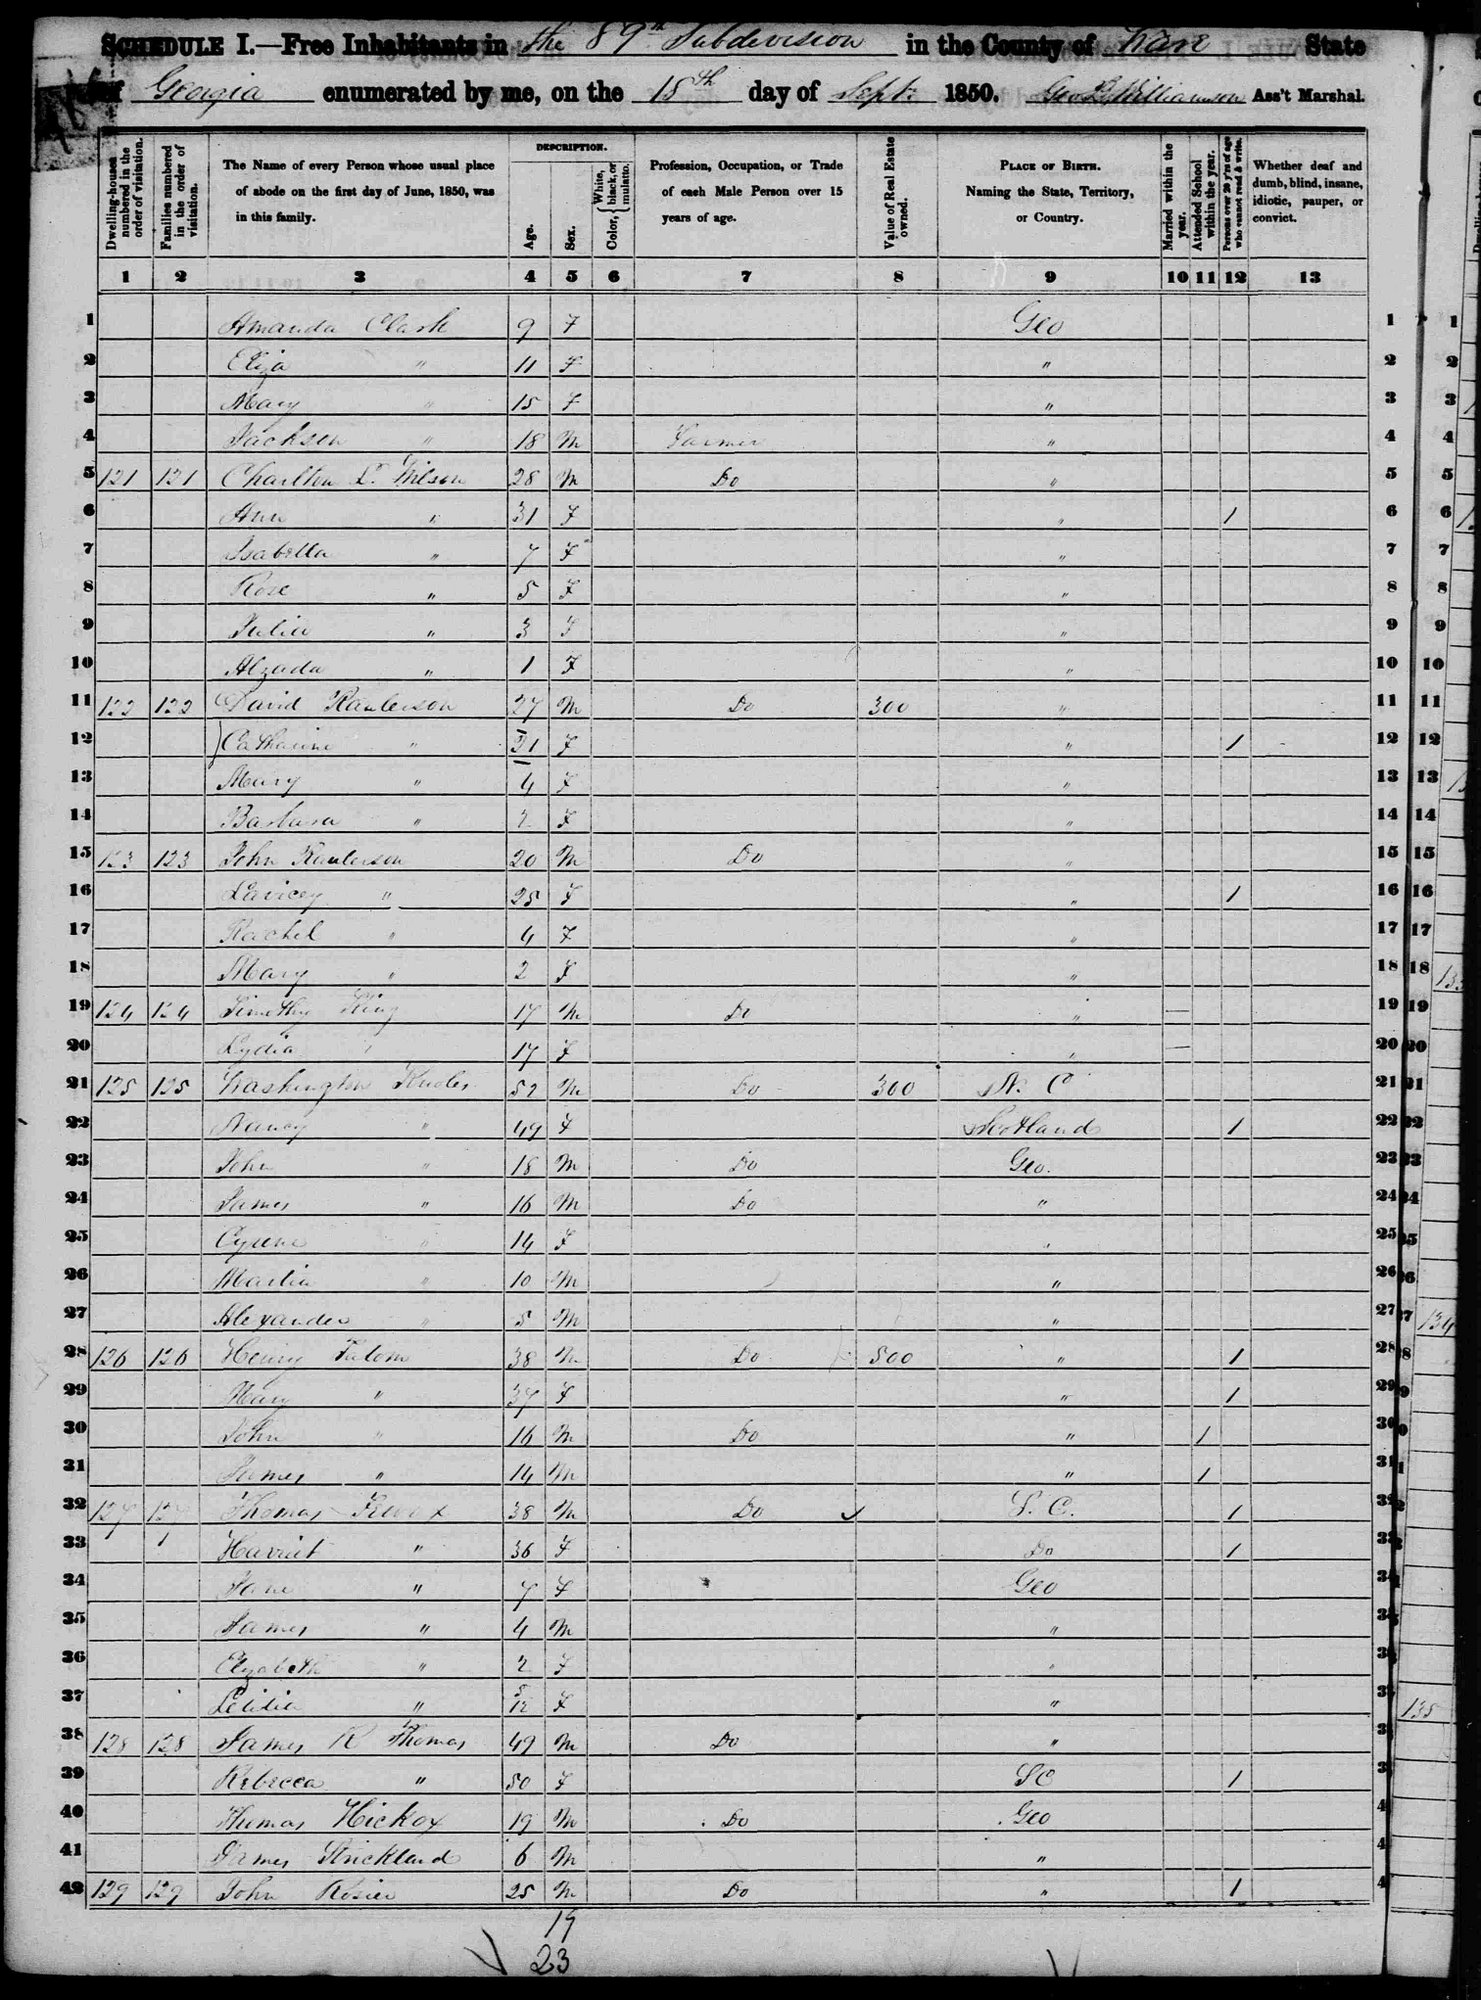 SCHEDULE I.—Free Inhabitants in the 89th Subdivision in the County of Ware State
of Georgia enumerated by me, on the 15th day of Sept. 1850. Geo B. Williamson Ass't Marshal.
Dwelling-houses numbered in the order of visitation.
Families numbered in the order of visitation.
The Name of every Person whose usual place of abode on the first day of June, 1850, was in this family.
DESCRIPTION.
Age.
Sex.
Color, { White, black, or mulatto.
Profession, Occupation, or Trade of each Male Person over 15 years of age.
Value of Real Estate owned.
PLACE OF BIRTH. Naming the State, Territory, or Country.
Married within the year.
Attended School within the year.
Persons over 20 y'rs of age who cannot read & write.
Whether deaf and dumb, blind, insane, idiotic, pauper, or convict.
1 2 3 4 5 6 7 8 9 10 11 12 13
1 Amanda Clark 9 F Geo 1
2 Eliza " 11 F " 2
3 Mary " 15 F " 3
4 Jackson " 18 M Farmer " 4
5 121 121 Charlton L. Wilson 28 M Do " 5
6 Ann " 31 F " 1 6
7 Isabella " 7 F " 7
8 Rose " 5 F " 8
9 Julia " 3 F " 9
10 Alzada " 1 F " 10
11 122 122 David Raulerson 27 M Do 300 " 11
12 Catharine " 21 F " 1 12
13 Mary " 4 F " 13
14 Barbara " 2 F " 14
15 123 123 John Raulerson 20 M Do " 15
16 Lavicey " 25 F " 1 16
17 Rachel " 4 F " 17
18 Mary " 2 F " 18
19 124 124 Timothy King 17 M Do " — 19
20 Lydia " 17 F " — 20
21 125 125 Washington 52 M Do 300 N. C 21
22 Nancy " 49 F Scotland 1 22
23 John " 18 M Do Geo. 23
24 James " 16 M Do " 24
25 Cyrene " 14 F " 25
26 Martin " 10 M " 26
27 Alexander " 5 M " 27
28 126 126 Henry 38 M Do 500 " 1 28
29 Mary " 37 F " 1 29
30 John " 16 M Do " 1 30
31 James " 14 M " 1 31
32 127 127 Thomas 38 M Do S. C. 1 32
33 Harriet " 36 F Do 1 33
34 Jane " 7 F Geo 34
35 James " 4 M " 35
36 Elizabeth " 2 F " 36
37 Letitia " 8/12 F " 37
38 128 128 James R Thomas 49 M Do " 38
39 Rebecca " 50 F SC 1 39
40 Thomas Hickox 19 M Do Geo 40
41 James Strickland 6 M " 41
42 129 129 John Rosier 25 M Do " 1 42
19
23